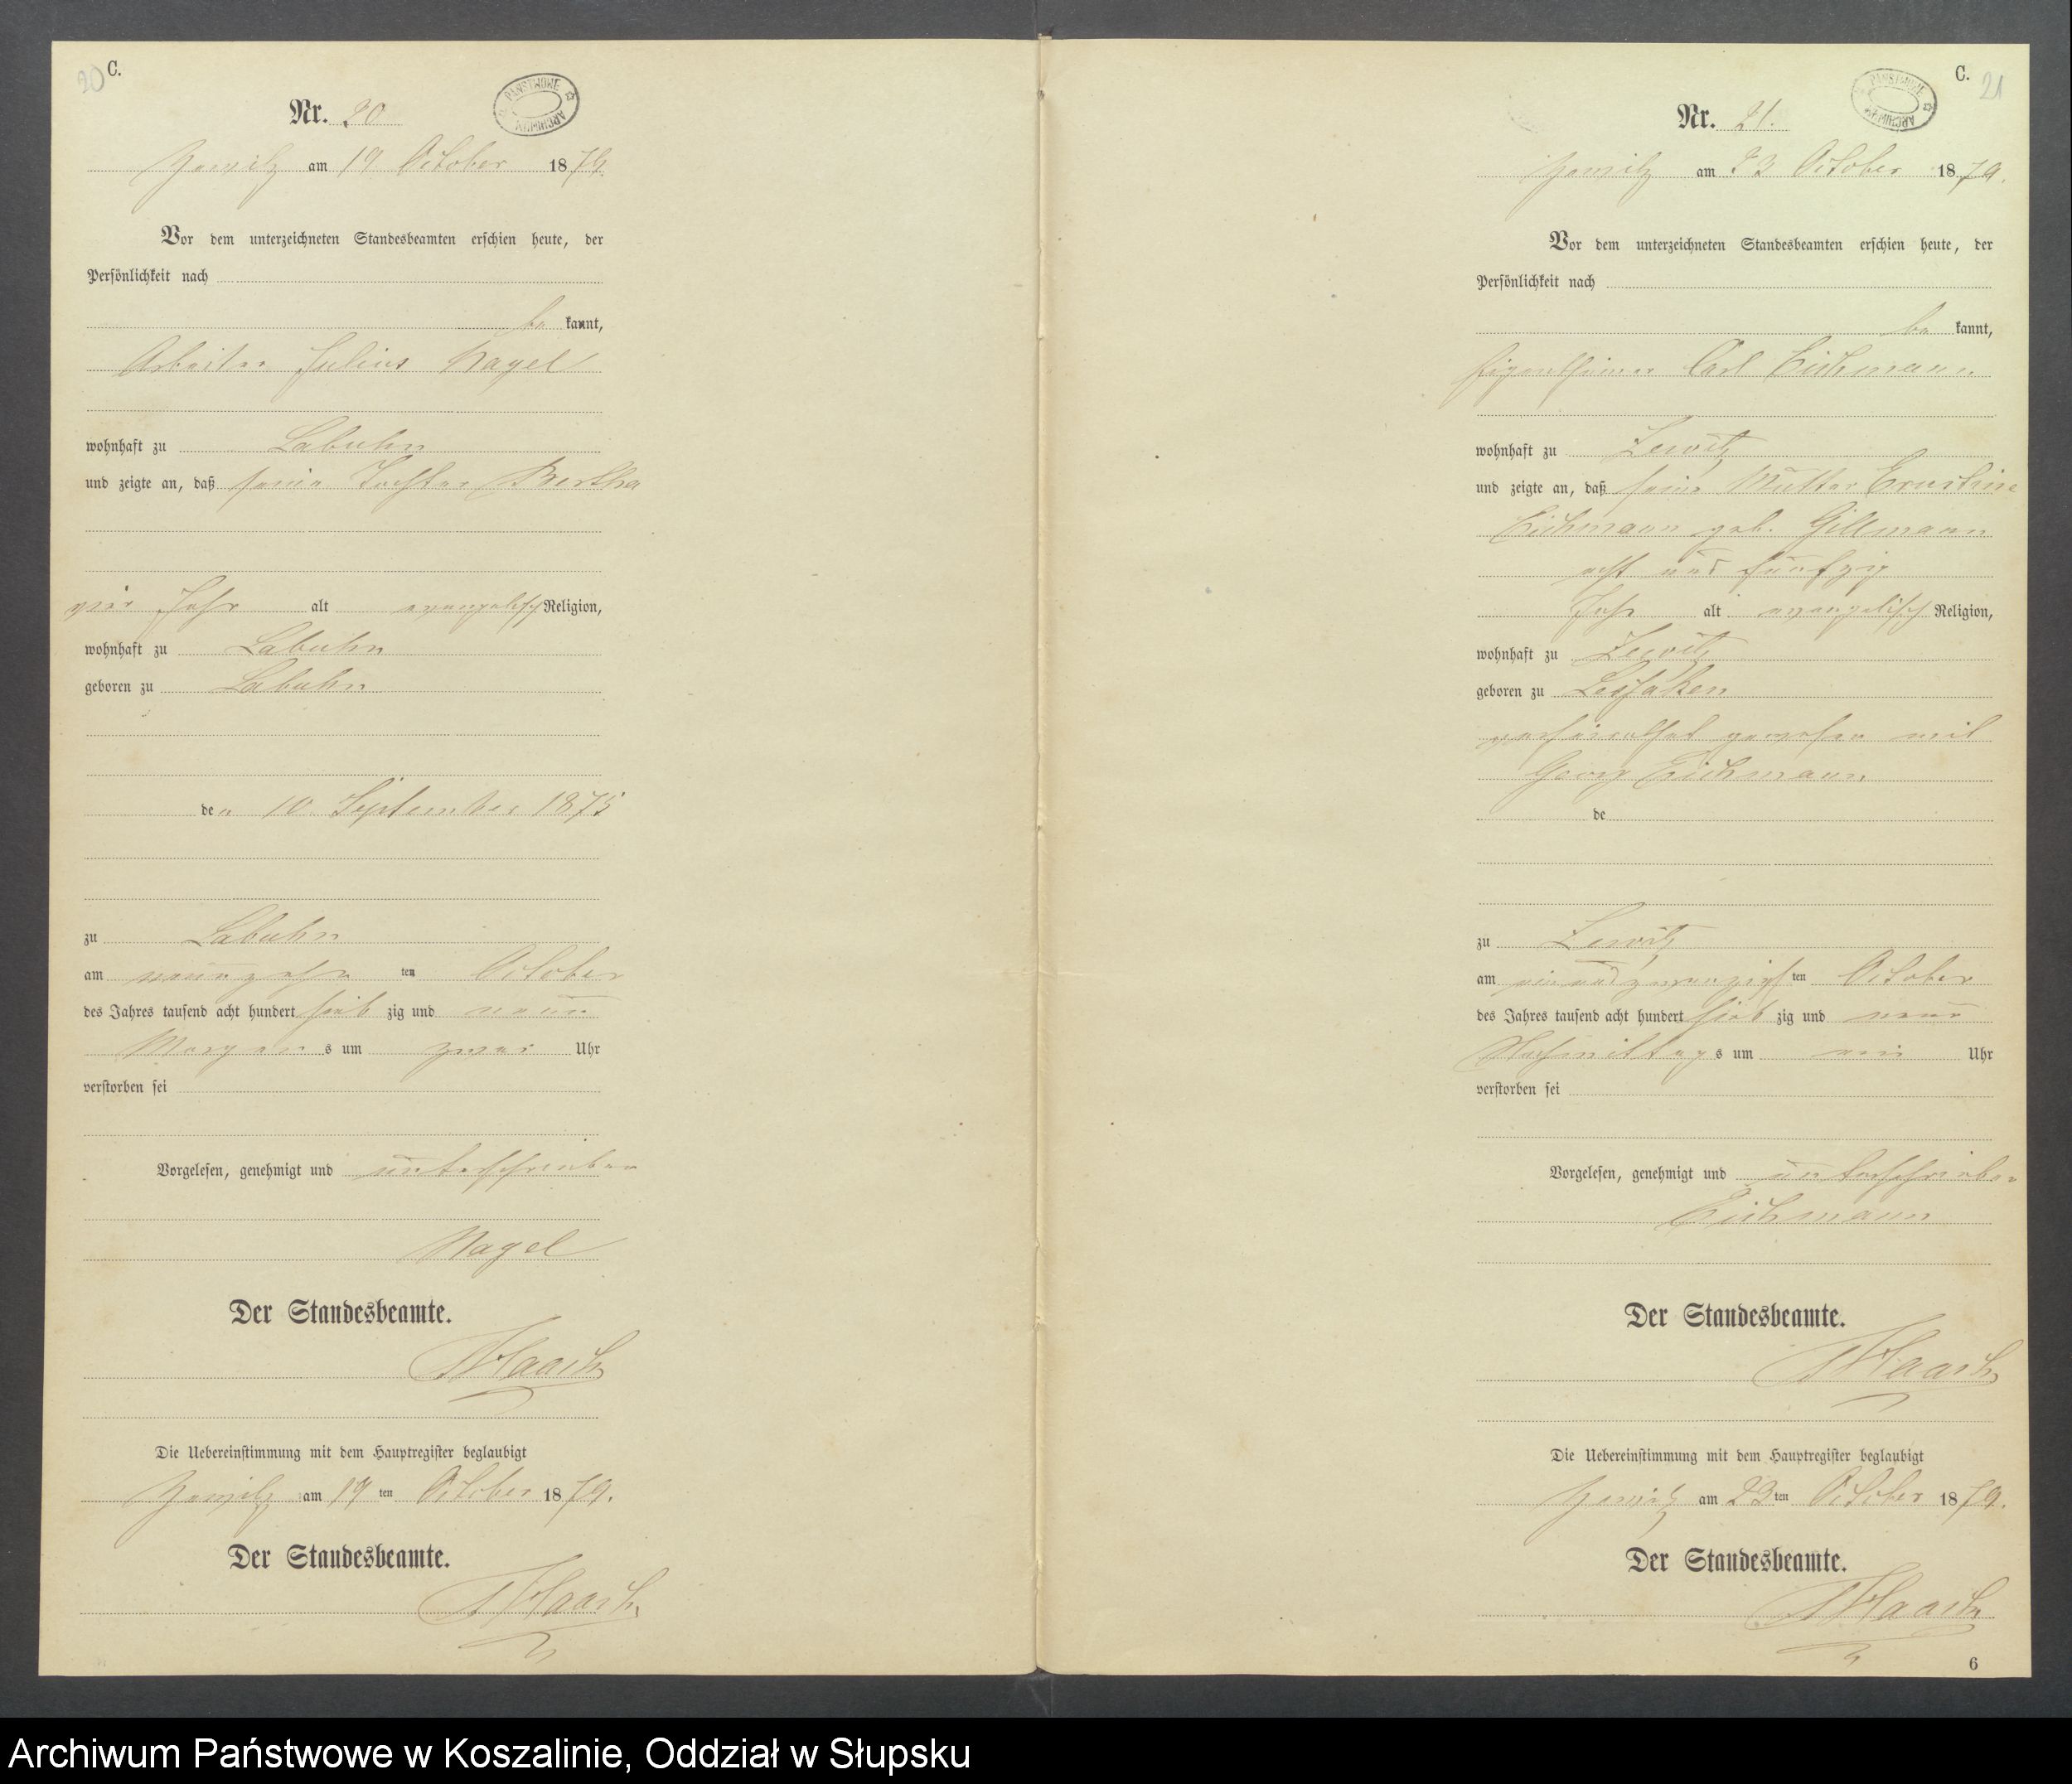 20 C.
Nr. 20
PAŃSTWOWE ARCHIWUM
Jannewitz am 19 October 1879.
Vor dem unterzeichneten Standesbeamten erschien heute, der
Persönlichkeit nach
be kannt,
Arbeiter Julius Nagel
wohnhaft zu Labuhn
und zeigte an, daß seine Tochter Bertha
vier Jahr alt evangelisch Religion,
wohnhaft zu Labuhn
geboren zu Labuhn
den 10. September 1875
zu Labuhn
am neunzehn ten October
des Jahres tausend acht hundert sieb zig und neun
Morgen s um zwei Uhr
verstorben sei
Vorgelesen, genehmigt und unterschrieben
Nagel
Der Standesbeamte.
Haack
Die Uebereinstimmung mit dem Hauptregister beglaubigt
am 19 ten October 1879.
Der Standesbeamte.
Haack
C. 21
Nr. 21.
PAŃSTWOWE ARCHIWUM
am 23 October 1879.
Vor dem unterzeichneten Standesbeamten erschien heute, der
Persönlichkeit nach
be kannt,
Eigenthümer Carl Eichmann
wohnhaft zu Zewitz
und zeigte an, daß seine Mutter Ernstine
Eichmann geb. Gillmann
acht und fünfzig
Jahr alt evangelisch Religion,
wohnhaft zu Zewitz
geboren zu Lessaken
verheirathet gewesen mit
Georg Eichmann
de
zu Zewitz
am einundzwanzigs ten October
des Jahres tausend acht hundert sieb zig und neun
Nachmittag s um ein Uhr
verstorben sei
Vorgelesen, genehmigt und unterschrieben
Eichmann
Der Standesbeamte.
Haack
Die Uebereinstimmung mit dem Hauptregister beglaubigt
am 23 ten October 1879.
Der Standesbeamte.
Haack
6
Archiwum Państwowe w Koszalinie, Oddział w Słupsku